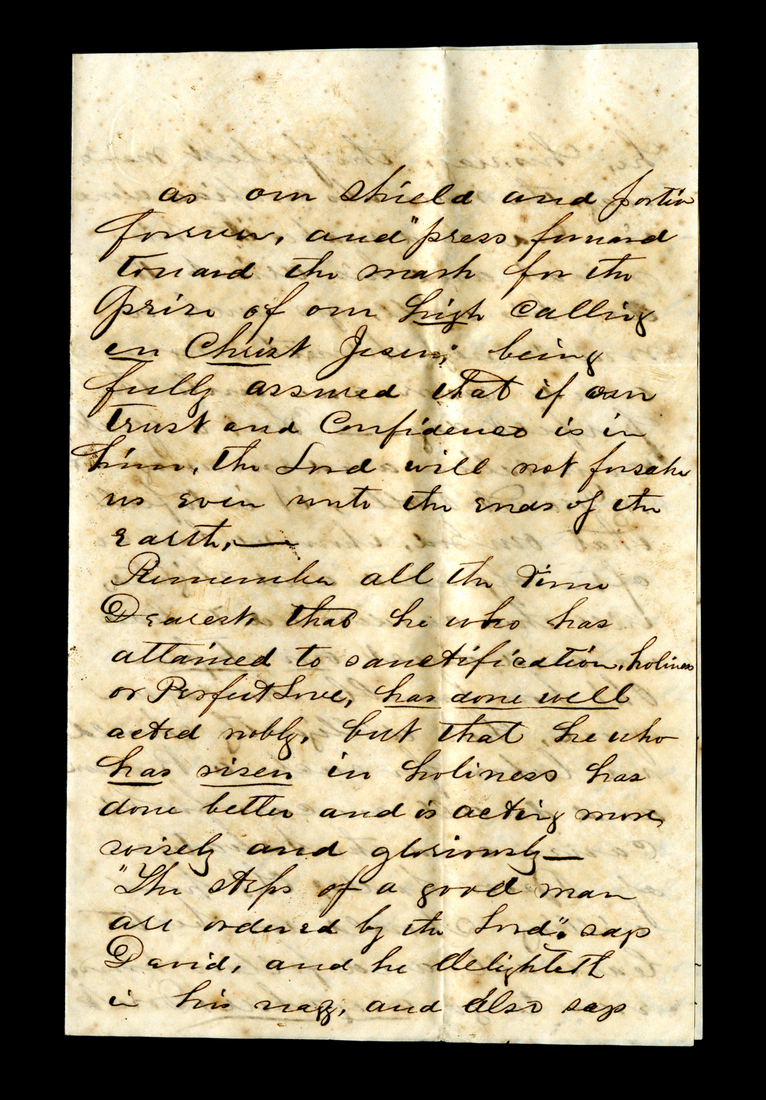 as our shield and portion
forever, and "press forward
toward the mark for the
Prize of our high calling
in Christ Jesus," being
fully assured that if our
trust and Confidence is in
him, the Lord will not forsake
us even unto the ends of the
earth,—
Remember all the time
Dearest that he who has
attained to sanctification, holiness
or Perfect Love, has done well
acted nobly, but that he who
has risen in holiness has
done better and is acting more
wisely and gloriously—
"The steps of a good man
are ordered by the Lord". says
David, and he delighteth
in his way, and also says